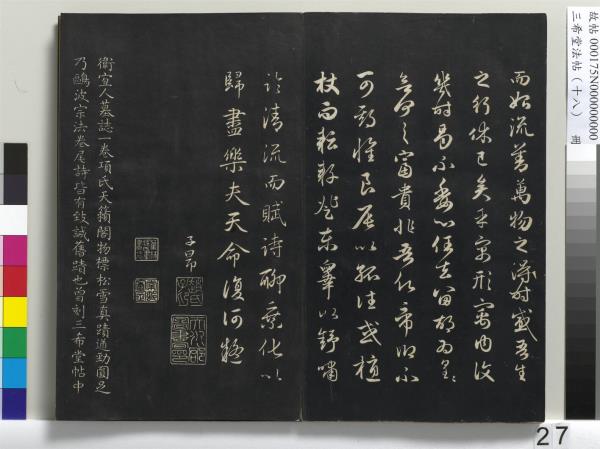 故帖 000175N000000000
三希堂法帖（十八）
而始流善萬物之得時感吾生
之行休已矣乎寓形宇內復
幾時曷不委心任去留胡為遑〻
欲何之富貴非吾願帝鄉不
可期懷良辰以孤往或植
杖而耘耔登東皋以舒嘯
臨清流而賦詩聊乘化以
歸盡樂夫天命復何疑
子昂
衛宜人墓誌一卷項氏天籟閣物標松雪真蹟遒勁圓足
乃鷗波宗法卷尾詩皆有致誠舊蹟也曾刻三希堂帖中
27